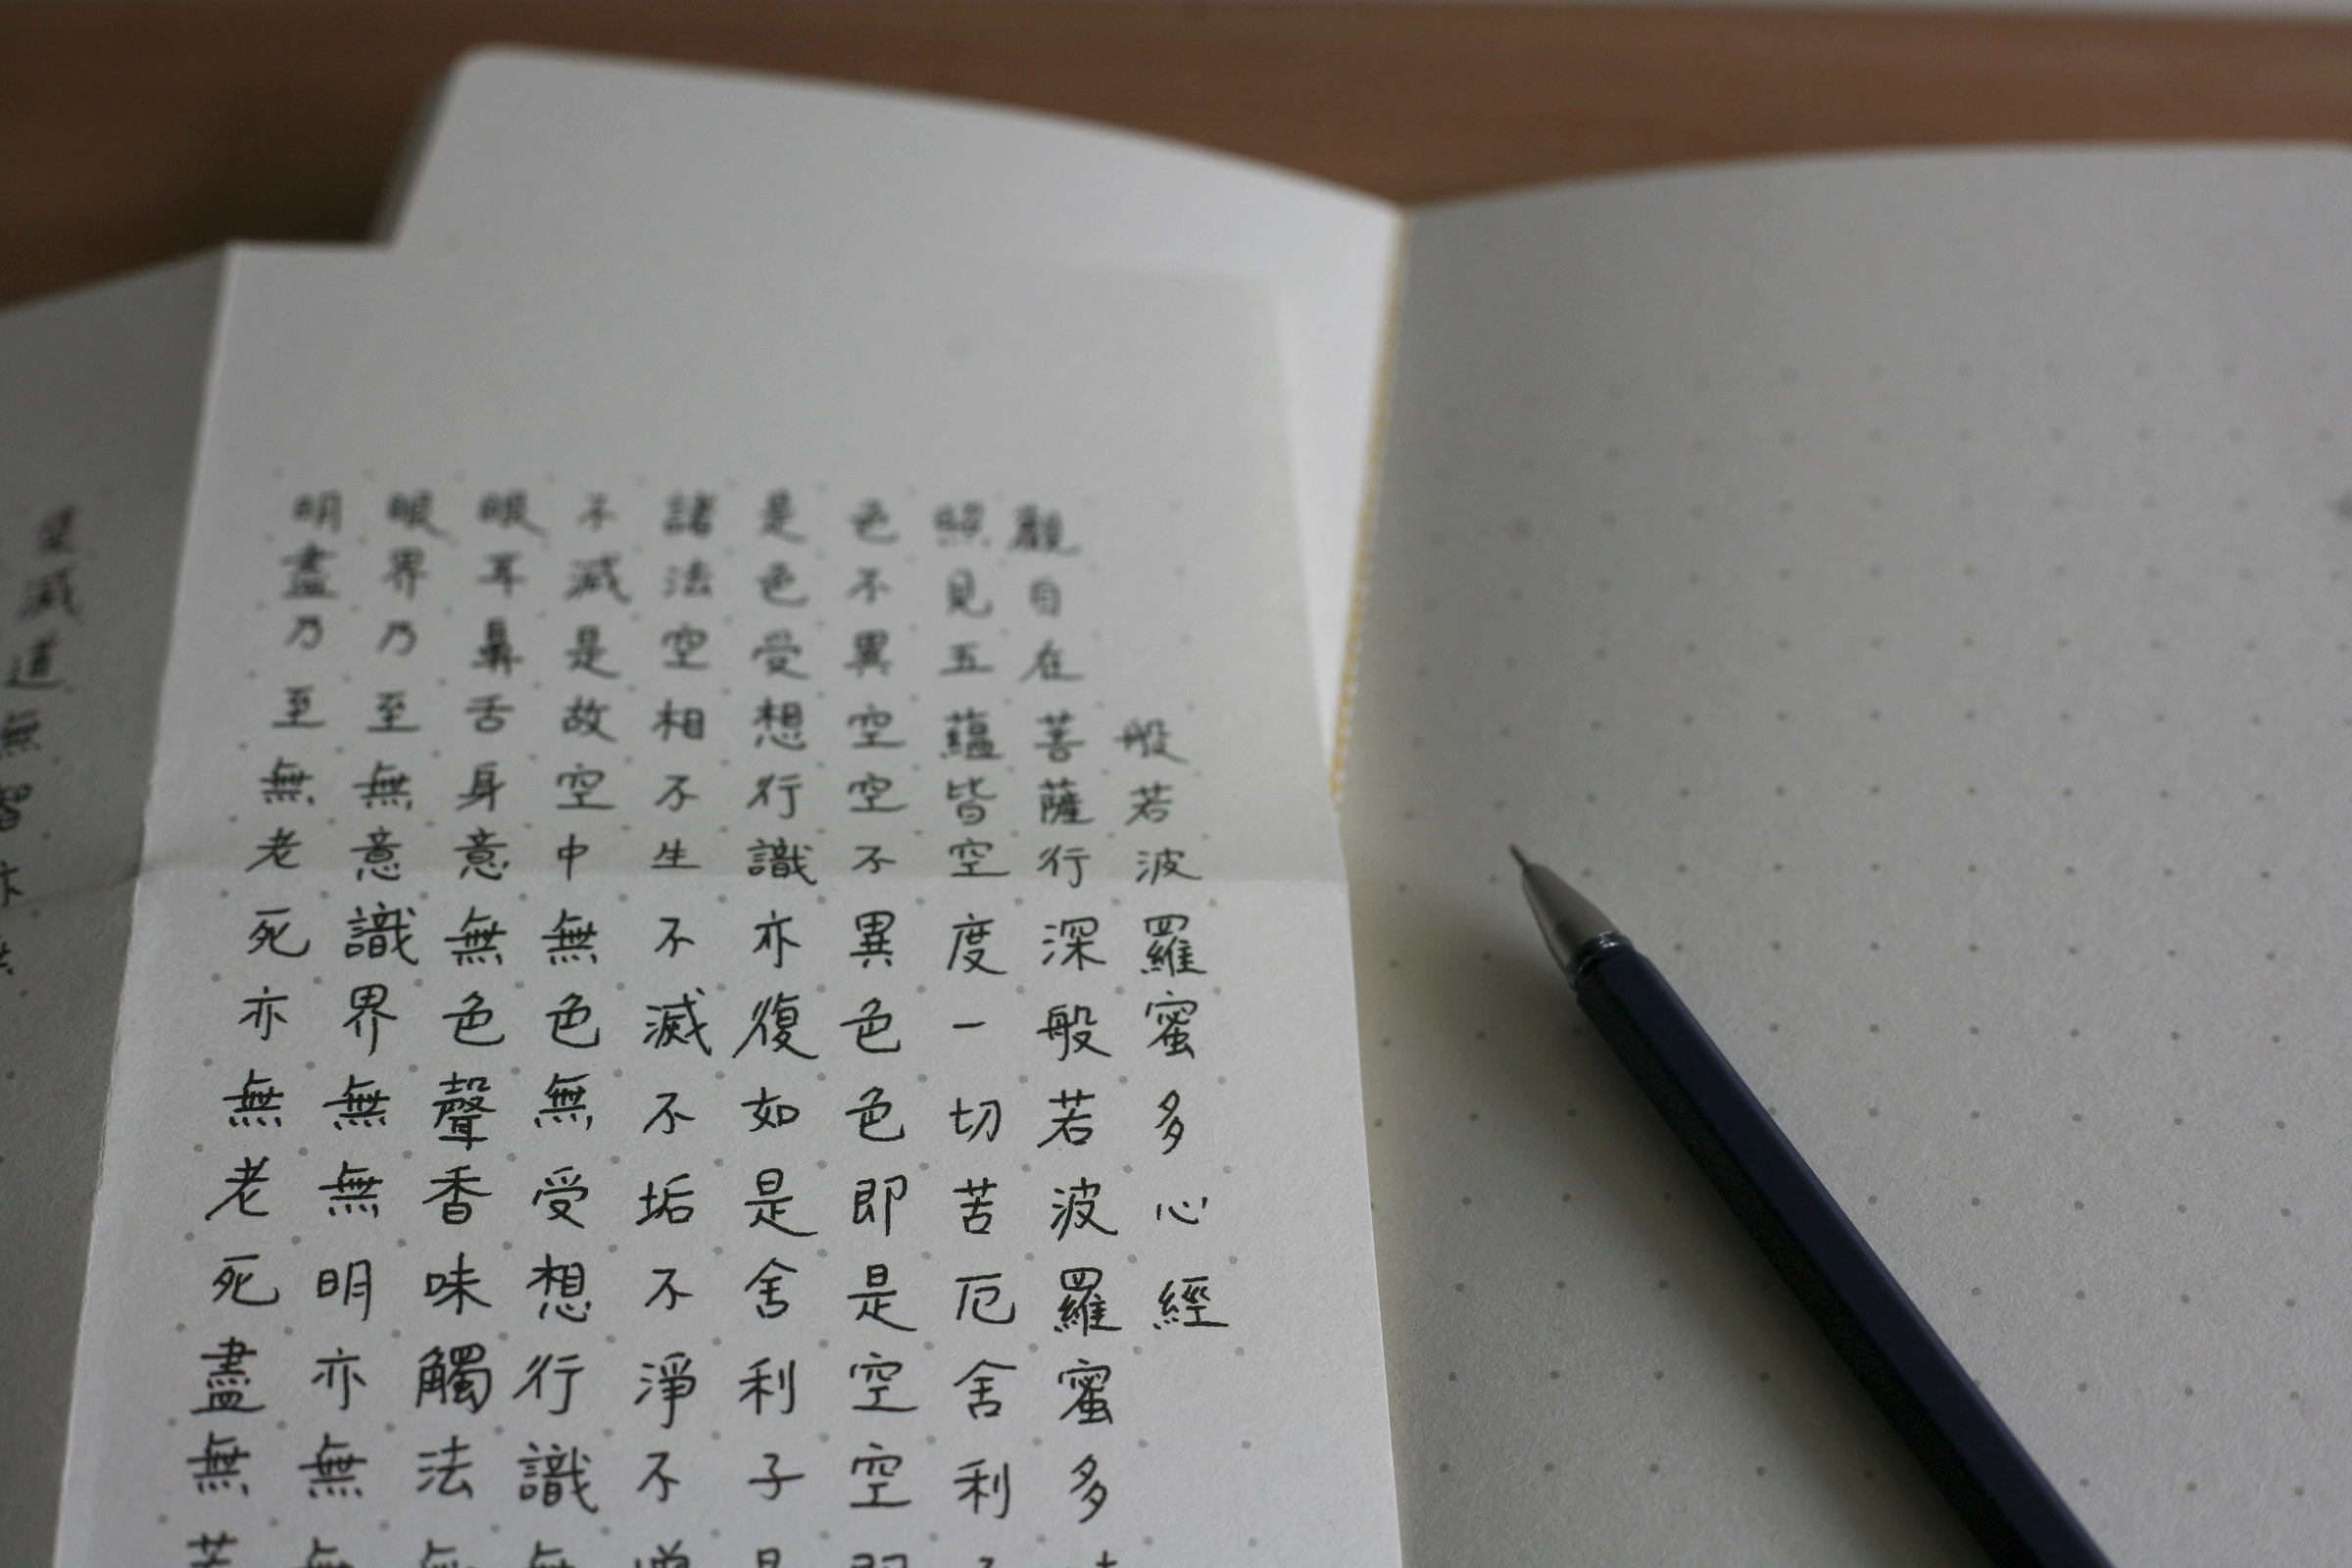 般若波羅蜜多心經
觀自在菩薩行深般若波羅蜜多
照見五蘊皆空度一切苦厄舍利
色不異空空不異色色即是空空
是色受想行識亦復如是舍利子是
諸法空相不生不滅不垢不淨不增
不滅是故空中無色無受想行識無
眼耳鼻舌身意無色聲香味觸法無
眼界乃至無意識界無無明亦無無
明盡乃至無老死亦無老死盡無苦
滅道無智亦